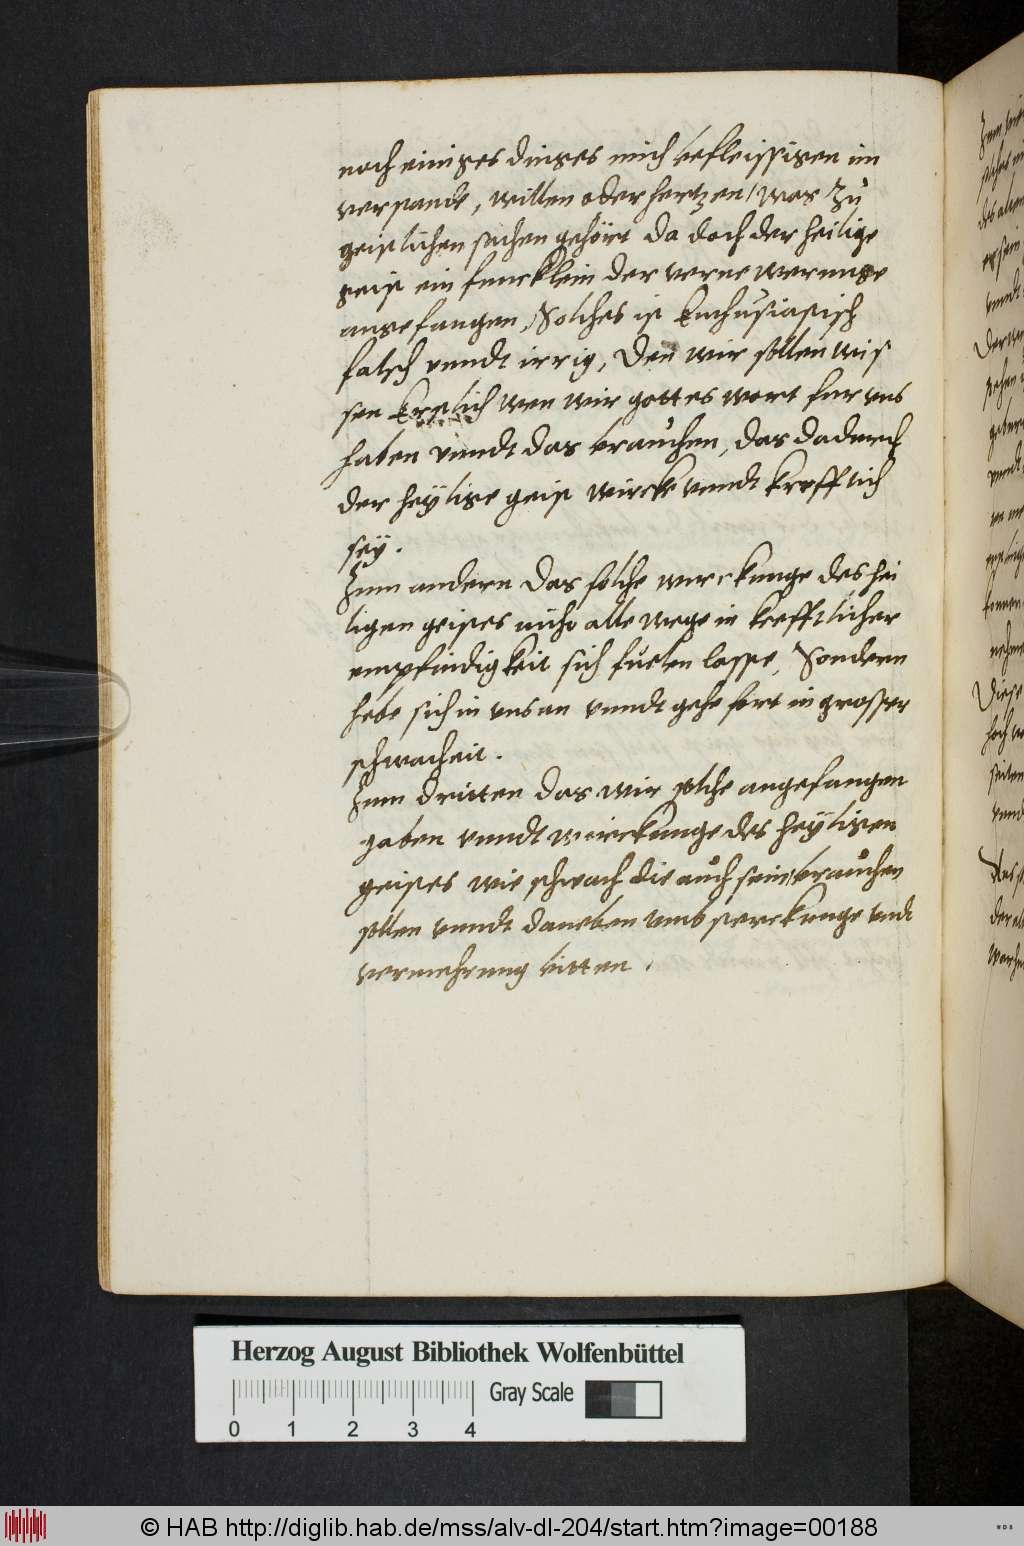 noch einiges dinges mich befleissigen im
verstande, willen oder hertzen/ was zu
geistlichen sachen gehört da doch der heilige
geist ein funcklein der
angefangen, Solches ist Enthusiastisch
falsch vnndt irrig, Den wir sollen wis
sen Erstlich wen wir gottes wort fur vns
haben vnndt das brauchen, das dadurch
der heÿlige geist wircke vnndt krefftich
seÿ.
Zum andern das solche wirckunge des hei
ligen geistes nicht alle wege in krefftlicher
empfindigkeit sich fuelen lasse, Sondern
hebe sich in vns an vnndt gehe fort in grosser
schwacheit.
Zum dritten das wir solche angefangen
gaben vnndt wirckunge des heÿligen
geistes wie schwach die auch sein, brauchen
sollen vnndt daneben vmb sterckunge vndt
vermehrung bitten.
Herzog August Bibliothek Wolfenbüttel
0 1 2 3 4 Gray Scale
© HAB http://diglib.hab.de/mss/alv-dl-204/start.htm?image=00188